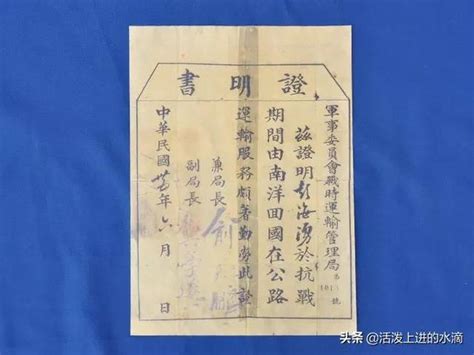 證明書
軍事委員會戰時運輸管理局
茲證明彭海湧於抗戰
期間由南洋回國在公路
運輸服務頗著勤勞此證
兼局長 俞飛鵬
副局長
中華民國 年六月 日
头条 @活泼上进的水滴